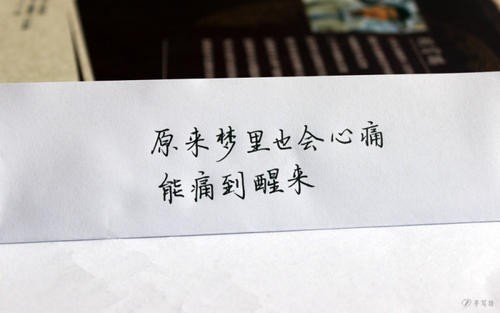 原来梦里也会心痛
能痛到醒来
手写猫